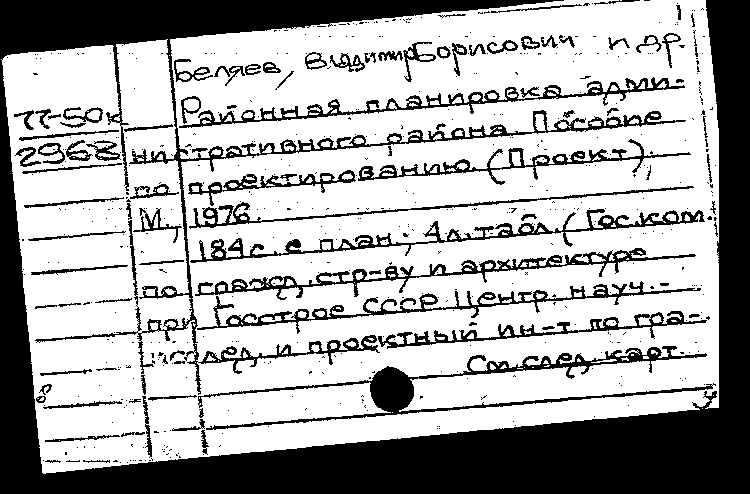 Беляев, Владимир Борисович и др.
77-50к Районная планировка адми-
2968 нистративного района. Пособие
по проектированию. (Проект).
М., 1976.
184с. с план.; 4л. табл. (Гос. ком.
по гражд. стр-ву и архитектуре
при Госстрое СССР Центр. науч.-
исслед. и проектный ин-т по гра-
См. след. карт.